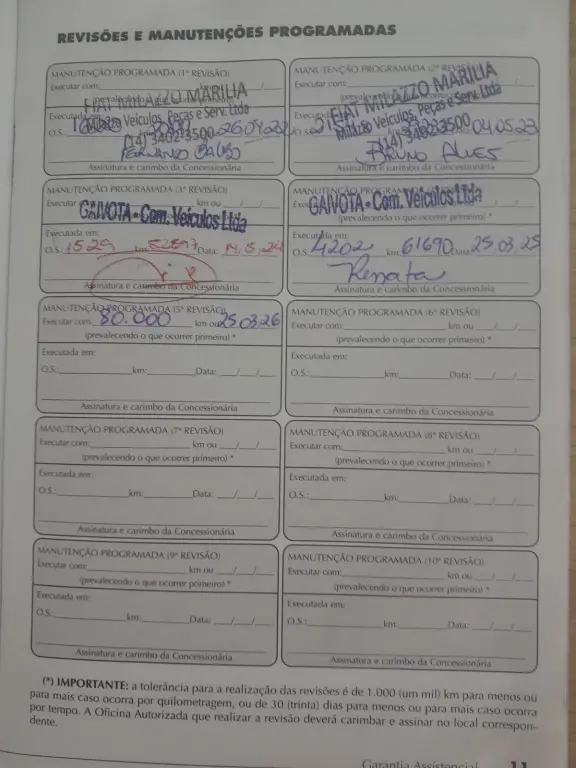 REVISÕES E MANUTENÇÕES PROGRAMADAS
MANUTENÇÃO PROGRAMADA (1ª REVISÃO)
Executar com:
FIAT MILAZZO MARILIA
Milazzo Veículos, Peças e Serv. Ltda
(14) 3402-3500
O.S.: 26.04.22
FERNANDO
Assinatura e carimbo da Concessionária
MANUTENÇÃO PROGRAMADA (2ª REVISÃO)
Executar com:
(prevalecendo
FIAT MILAZZO MARILIA
Milazzo Veículos, Peças e Serv. Ltda
(14) 3402-3500
04.05.23
BRUNO ALVES
Assinatura e carimbo da Concessionária
MANUTENÇÃO PROGRAMADA (3ª REVISÃO)
Executar km ou
GAIVOTA - Com. Veículos Ltda
Executada em:
O.S.: 1529 km: Data: .5.24
Assinatura e carimbo da Concessionária
MANUTENÇÃO PROGRAMADA
GAIVOTA - Com. Veículos Ltda
(prevalecendo o que ocorrer primeiro) *
Executada em:
O.S.: 4202 km: 61690 Data: 25.03.25
Renata
Assinatura e carimbo da Concessionária
MANUTENÇÃO PROGRAMADA (5ª REVISÃO)
Executar com: 80.000 km ou 25 03 26
(prevalecendo o que ocorrer primeiro) *
Executada em:
O.S.: km: Data: / /
Assinatura e carimbo da Concessionária
MANUTENÇÃO PROGRAMADA (6ª REVISÃO)
Executar com: km ou / /
(prevalecendo o que ocorrer primeiro) *
Executada em:
O.S.: km: Data: / /
Assinatura e carimbo da Concessionária
MANUTENÇÃO PROGRAMADA (7ª REVISÃO)
Executar com: km ou / /
(prevalecendo o que ocorrer primeiro) *
Executada em:
O.S.: km: Data: / /
Assinatura e carimbo da Concessionária
MANUTENÇÃO PROGRAMADA (8ª REVISÃO)
Executar com: km ou / /
(prevalecendo o que ocorrer primeiro) *
Executada em:
O.S.: km: Data: / /
Assinatura e carimbo da Concessionária
MANUTENÇÃO PROGRAMADA (9ª REVISÃO)
Executar com: km ou / /
(prevalecendo o que ocorrer primeiro) *
Executada em:
O.S.: km: Data: / /
Assinatura e carimbo da Concessionária
MANUTENÇÃO PROGRAMADA (10ª REVISÃO)
Executar com: km ou / /
(prevalecendo o que ocorrer primeiro) *
Executada em:
O.S.: km: Data: / /
Assinatura e carimbo da Concessionária
(*) IMPORTANTE: a tolerância para a realização das revisões é de 1.000 (um mil) km para menos ou
para mais caso ocorra por quilometragem, ou de 30 (trinta) dias para menos ou para mais caso ocorra
por tempo. A Oficina Autorizada que realizar a revisão deverá carimbar e assinar no local correspon-
dente.
Garantia Assistencial 11